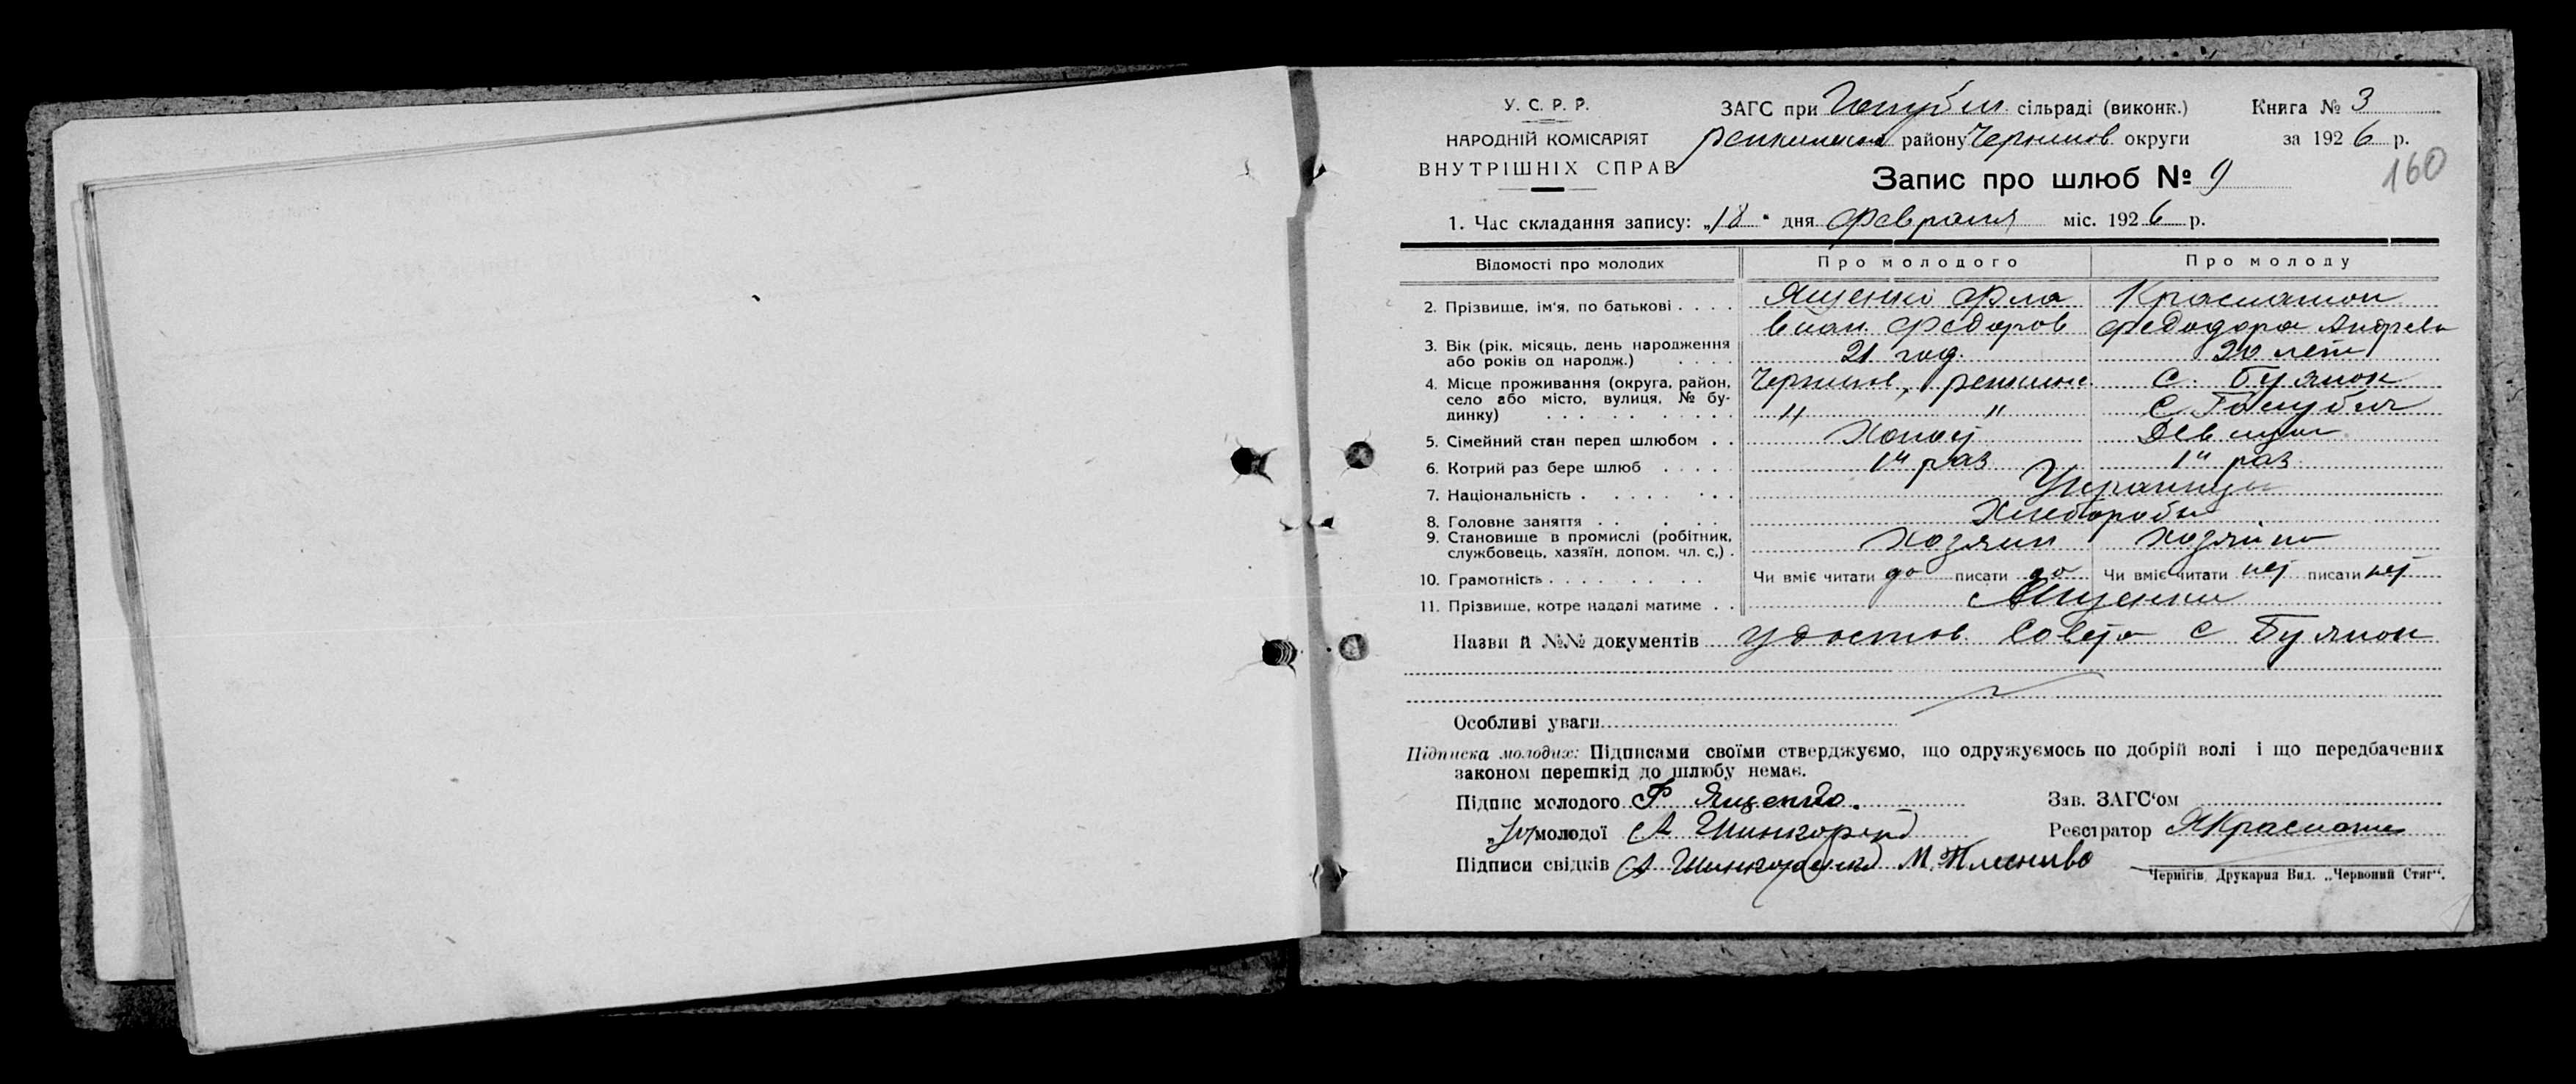 У. С. Р. Р.
НАРОДНІЙ КОМІСАРІЯТ
ВНУТРІШНІХ СПРАВ
ЗАГС при Голубич сільраді (виконк.)
району Чернигов округи
Книга № 3
за 1926 р.
160
Запис про шлюб № 9
1. Час складання запису: „18" дня Февраля міс. 1926 р.
Відомості про молодих Про молодого Про молоду
2. Прізвище, ім'я, по батькові . . . . Ященко Фла Краснашон
виан Федоров Феодора Андрев
3. Вік (рік, місяць, день народження
або років од народж.) . . . . 21 год. 20 лет
4. Місце проживання (округа, район, Чернигов, репкинс с. Буянок
село або місто, вулиця, № бу-
динку) . . . . . . . . . . " " С Голубич
5. Сімейний стан перед шлюбом . . Холост Девица
6. Котрий раз бере шлюб . . . . 1й раз 1й раз
7. Національність . . . . . . . . Украинцы
8. Головне заняття . . . . . Хлеборобы
9. Становище в промислі (робітник,
службовець, хазяїн, допом. чл. с.) . Хозяин Хозяйка
10. Грамотність . . . . . . . . Чи вміє читати да писати да Чи вміє читати нет писати нет
11. Прізвище, котре надалі матиме . . Ященки
Назви й №№ документів удостов. Совета с Буянок
Особливі уваги
Підписка молодих: Підписами своїми стверджуємо, що одружуємось по добрій волі і що передбачених
законом перешкід до шлюбу немає.
Підпис молодого Ф Ященко.
Зав. ЗАГС'ом
„ молодої А
Реєстратор
Підписи свідків А М.
Чернігів, Друкарня Вид. „Червоний Стяг".